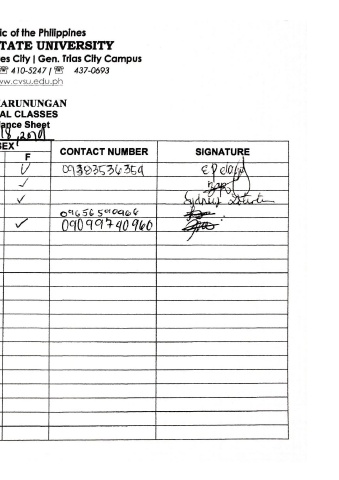 ic of the Philippines
TATE UNIVERSITY
es City | Gen. Trias City Campus
☏ 410-5247 / ☏ 437-0693
ww.cvsu.edu.ph
ARUNUNGAN
AL CLASSES
ance Sheet
SEX
F CONTACT NUMBER SIGNATURE
✓ 09383536354
✓
✓ Sydney
09656590966
✓ 09099740960